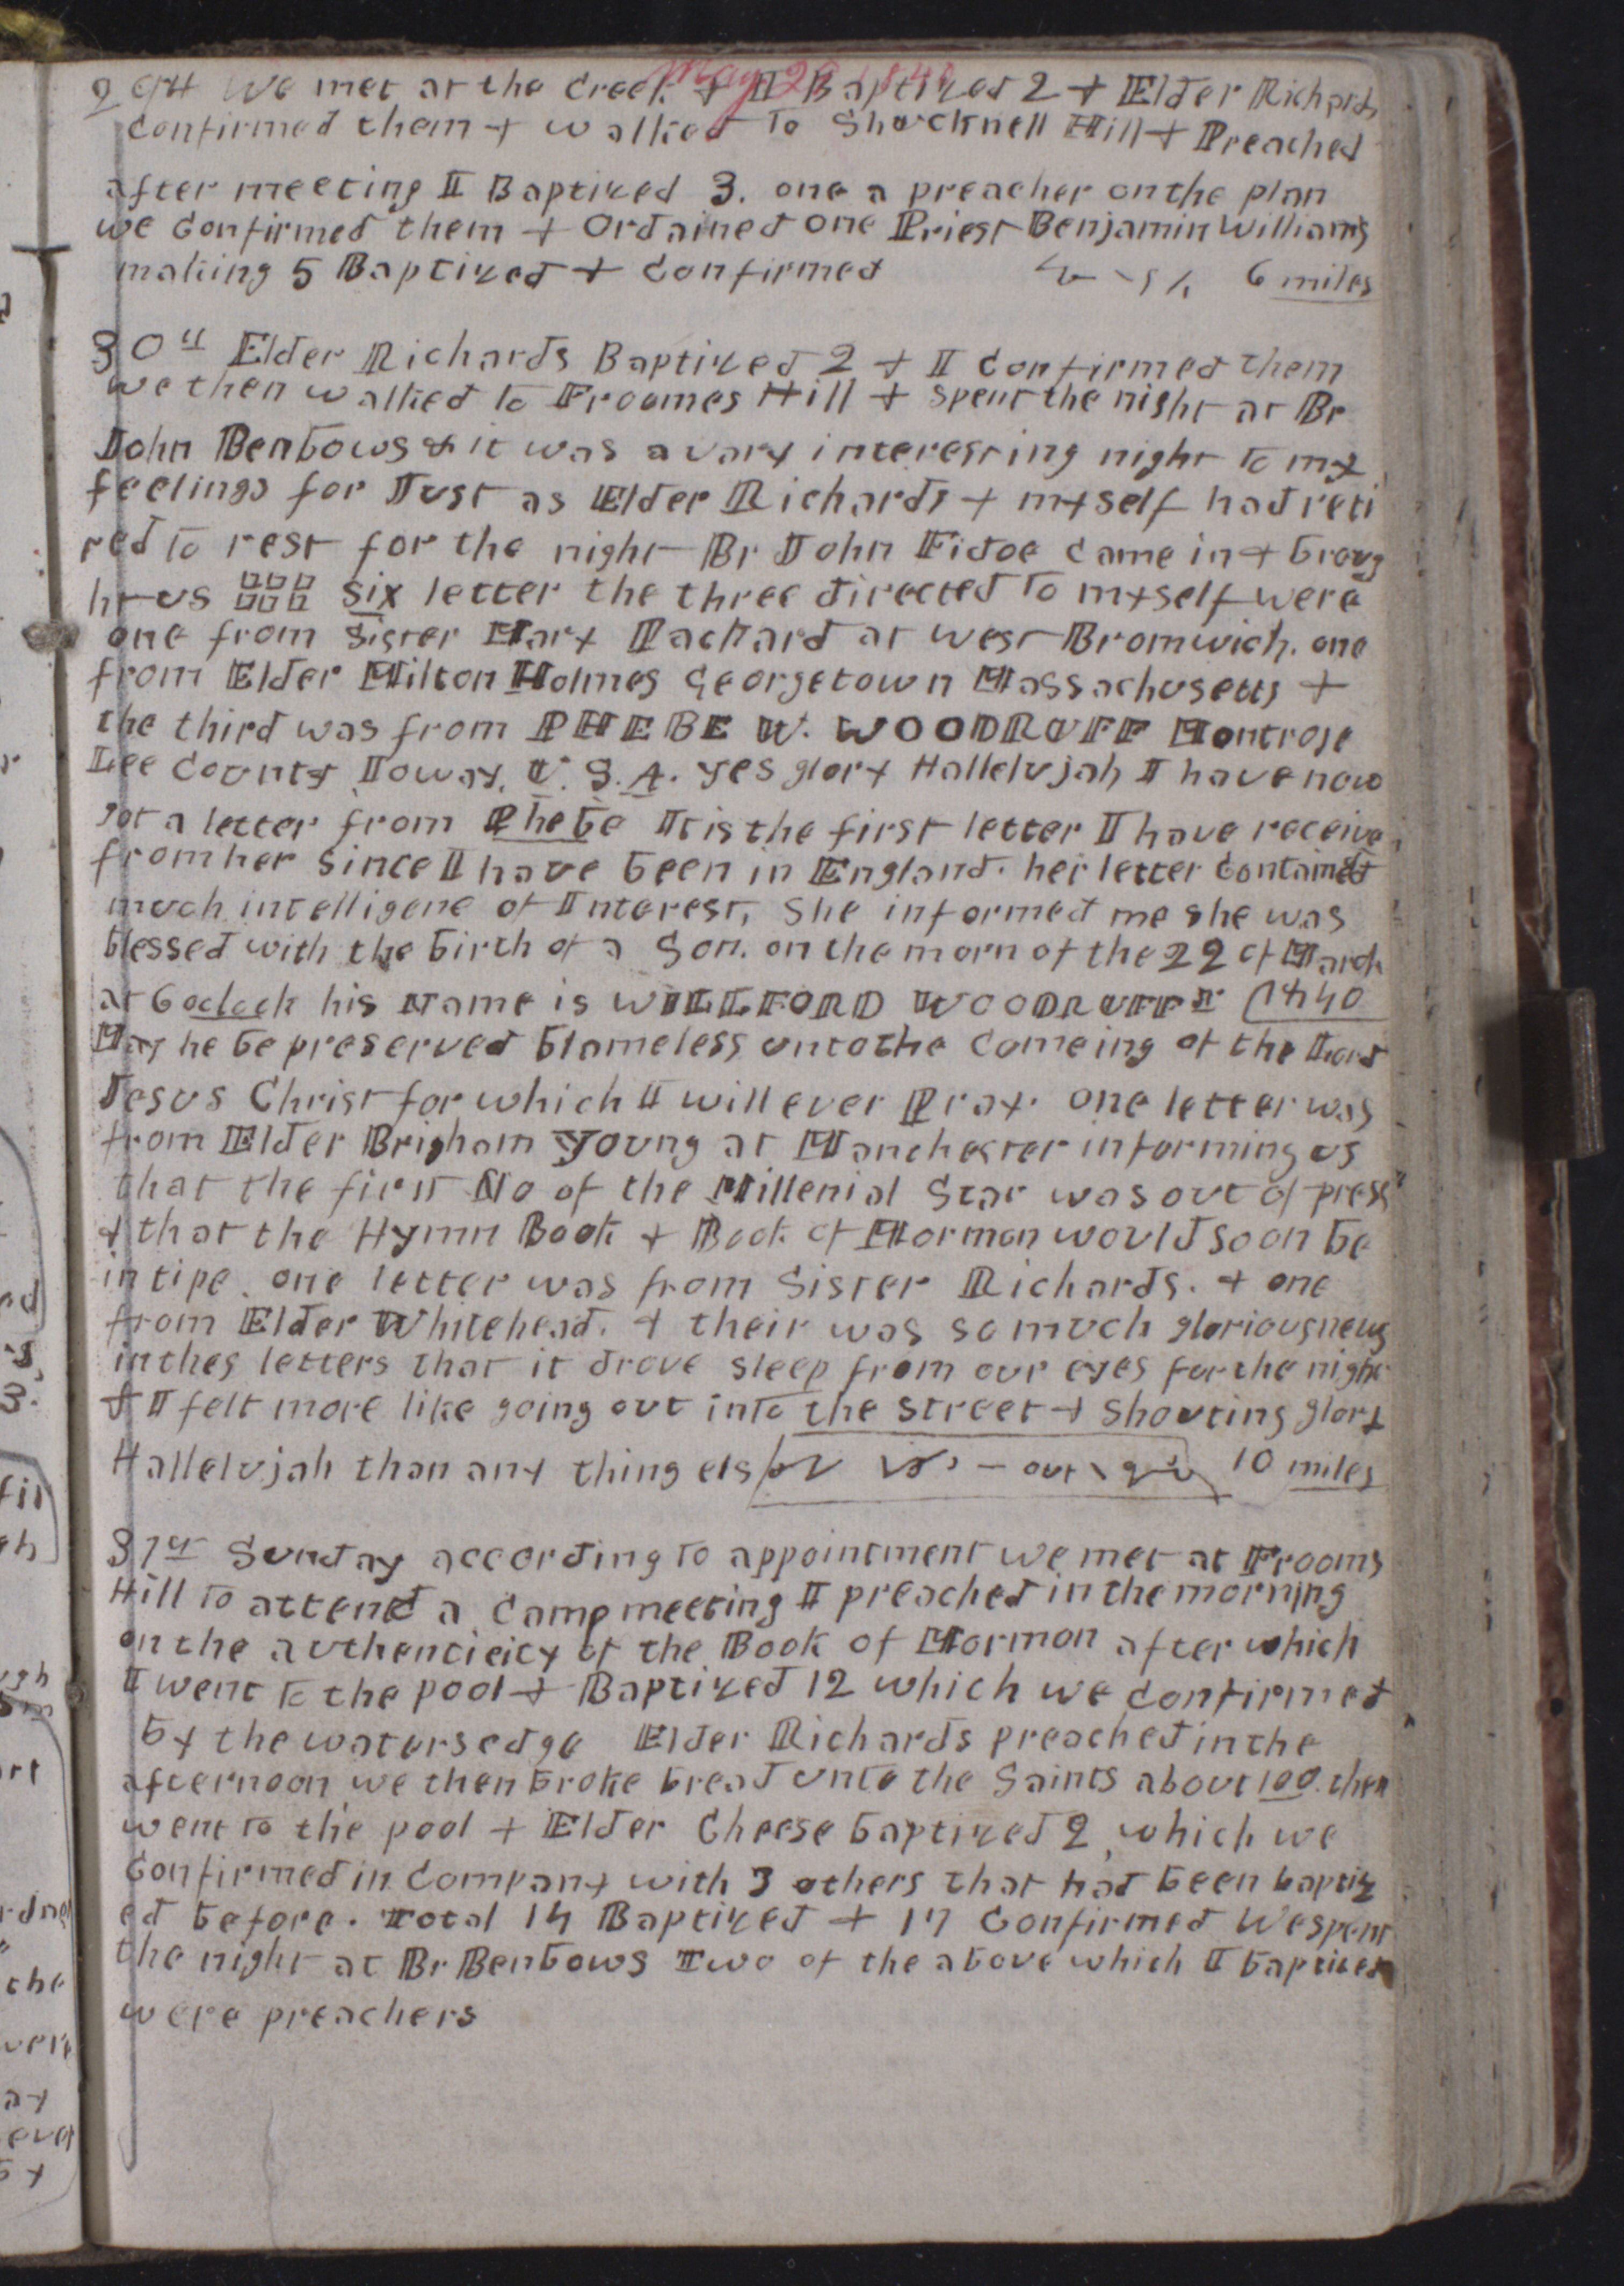 May 29 1840
29th We met at the Creek & I Baptized 2 & Elder Richards
Confirmed them & walked to Shucknell Hill & Preached
after meeting I Baptized 3. one a preacher on the plan
we Confirmed them & Ordained one Priest Benjamin Williams
making 5 Baptized & Confirmed 6 miles
30th Elder Richards Baptized 2 & I Confirmed them
we then walked to Froomes Hill & spent the night at Br
John Benbows & it was a vary interesting night to my
feelings for Just as Elder Richards & myself had reti
red to rest for the night Br John Fidoe Came in & broug
ht us six letter the three directed to myself were
one from Sister Mary Packard at west Bromwich. one
from Elder Milton Holmes Georgetown Massachusetts &
the third was from PHEBE W. WOODRUFF Montrose
Lee County Ioway, U. S. A. yes glory Hallelujah I have now
got a letter from Phebe It is the first letter I have receive
from her since I have been in England. her letter Contained
much intelligene of Interest, She informed me she was
blessed with the birth of a Son. on the morn of the 22 of March
at 6 oclock his Name is WILLFORD WOODRUFF 1840
May he be preserved blameless unto the Comeing of the Lord
Jesus Christ for which I will ever Pray. one letter was
from Elder Brigham Young at Manchester informing us
that the first No of the Millenial Star was out of press
& that the Hymn Book & Book of Mormon would soon be
in tipe. one letter was from Sister Richards. & one
from Elder Whitehead. & their was so much glorious news
in thes letters that it drove sleep from our eyes for the night
& I felt more like going out into the street & Shouting glory
Hallelujah than any thing els 10 miles
31st Sunday according to appointment we met at Frooms
Hill to attend a Camp meeting I preached in the morning
on the authenticity of the Book of Mormon after which
I went to the pool & Baptized 12 which we Confirmed
by the waters edge Elder Richards preached in the
afternoon we then broke bread unto the Saints about 100. then
went to the pool & Elder Cheese baptized 2, which we
Confirmed in Company with 3 others that had been baptiz
ed before. Total 14 Baptized & 17 Confirmed We spent
the night at Br Benbows Two of the above which I baptized
were preachers